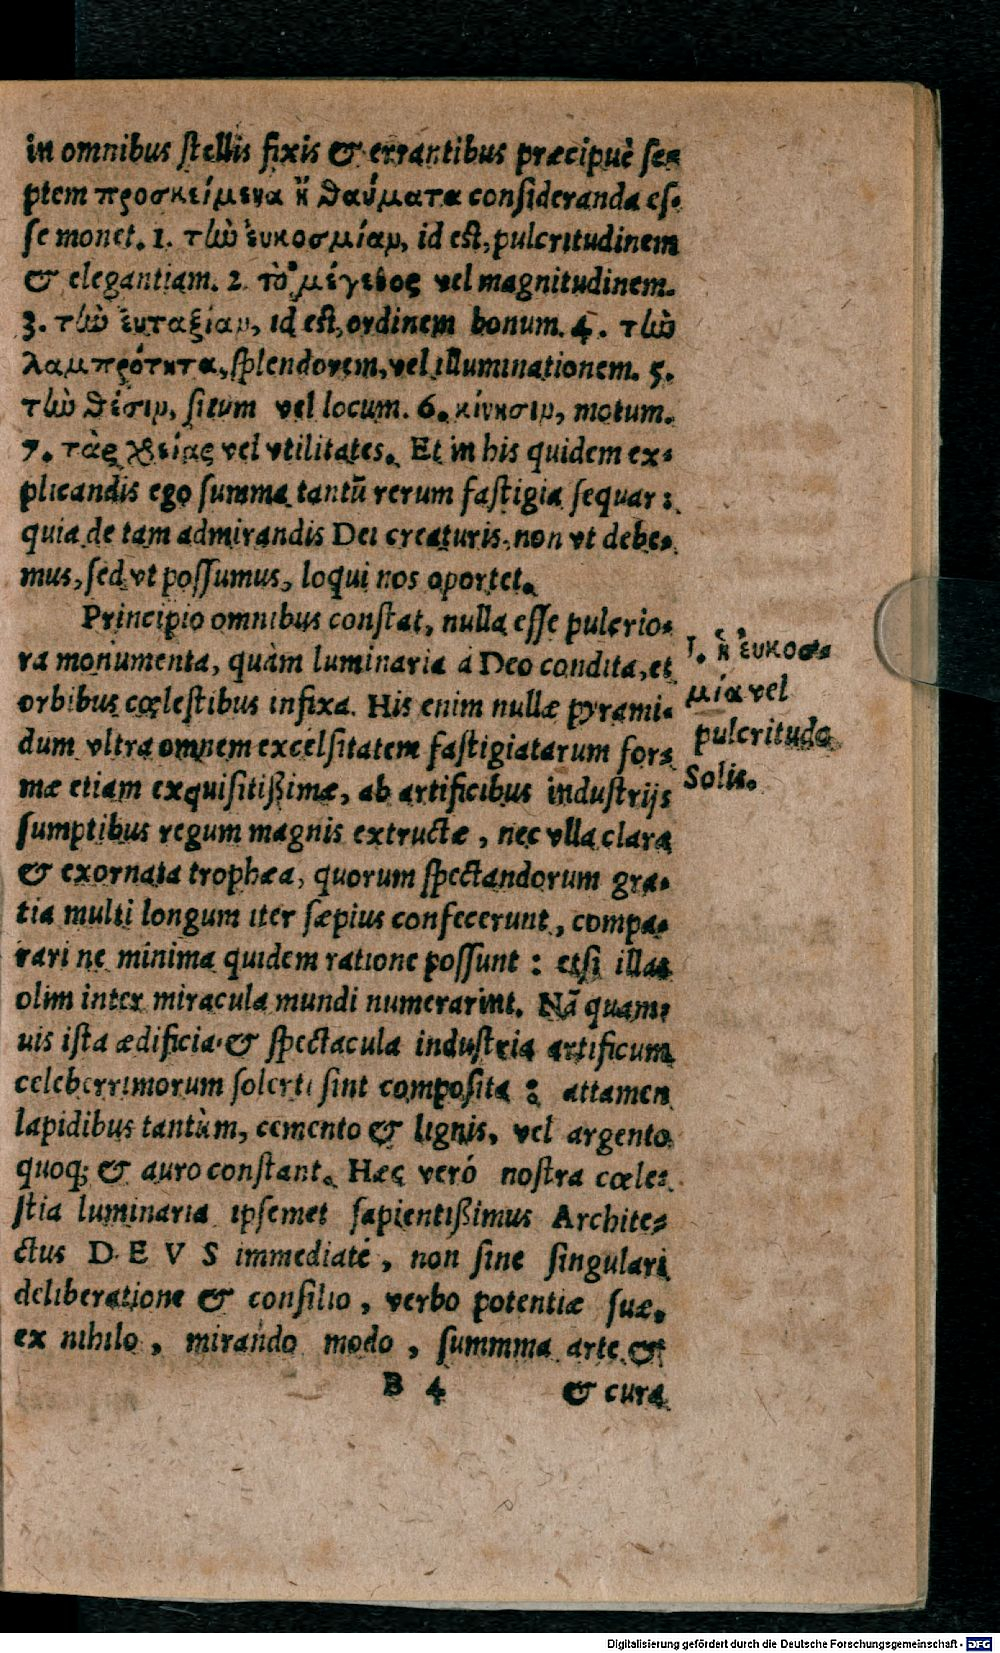 in omnibus ſtellis fixis & errantibus præcipuè ſe-
ptem προσκείμενα ἢ θαύματα conſideranda eſ-
ſe monet. 1. τὼ ἐυκοσμίαν, id eſt, pulcritudinem
& elegantiam. 2. τὸ μέγεθος vel magnitudinem.
3. τὼ ἐυταξίαν, id eſt, ordinem bonum. 4. τὼ
λαμπρότητα, ſplendorem, vel illuminationem. 5.
τὼ θέσιν, ſitum vel locum. 6. κίνησιν, motum.
7. τὰς χρείας vel vtilitates. Et in his quidem ex-
plicandis ego ſumma tantũ rerum faſtigia ſequar:
quia de tam admirandis Dei creaturis, non vt debe-
mus, ſed vt poſſumus, loqui nos oportet.
Principio omnibus conſtat, nulla eſſe pulcrio-
ra monumenta, quàm luminaria á Deo condita, et
orbibus cœleſtibus infixa. His enim nullæ pyrami-
dum vltra omnem excelſitatem faſtigiatarum for-
mæ etiam exquiſitißimæ, ab artificibus induſtrijs
ſumptibus regum magnis extructæ, nec vlla clara
& exornata trophæa, quorum ſpectandorum gra-
tia multi longum iter ſæpius confecerunt, compa-
rari ne minima quidem ratione poſſunt: etſi illas
olim inter miracula mundi numerarint. Nã quam-
uis iſta ædificia & ſpectacula induſtria artificum
celeberrimorum ſolerti ſint compoſita: attamen
lapidibus tantùm, cemento & lignis, vel argento
quoq; & auro conſtant. Hæc veró noſtra cœle-
ſtia luminaria ipſemet ſapientißimus Archite-
ctus D E V S immediaté, non ſine ſingulari
deliberatione & conſilio, verbo potentiæ ſuæ,
ex nihilo, mirando modo, ſummma arte &
B 4 & cura
1. ἡ ἐυκοσ-
μία vel
pulcritudo
Solis.
Digitalisierung gefördert durch die Deutsche Forschungsgemeinschaft - DFG